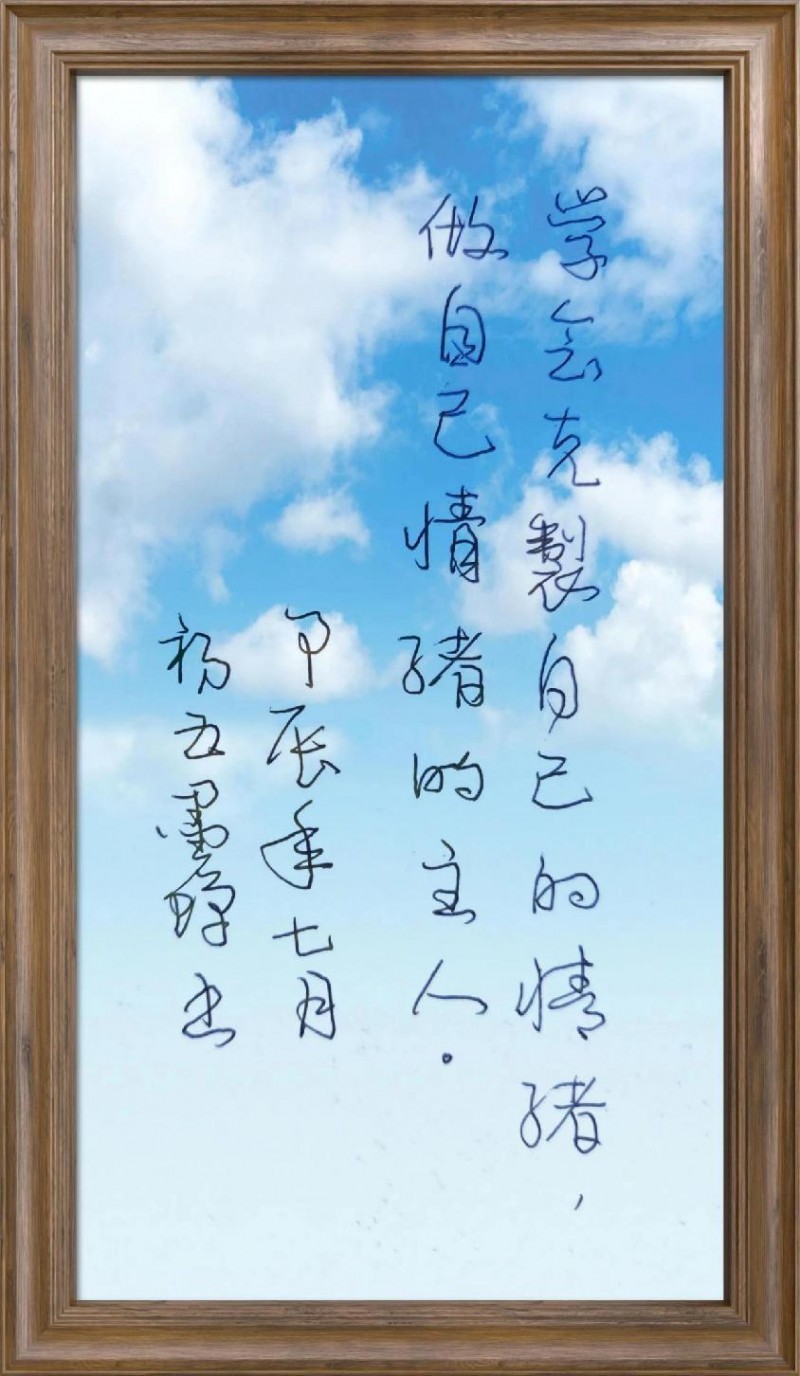 学会克製自己的情绪，
做自己情绪的主人.
甲辰年七月
初五墨野书